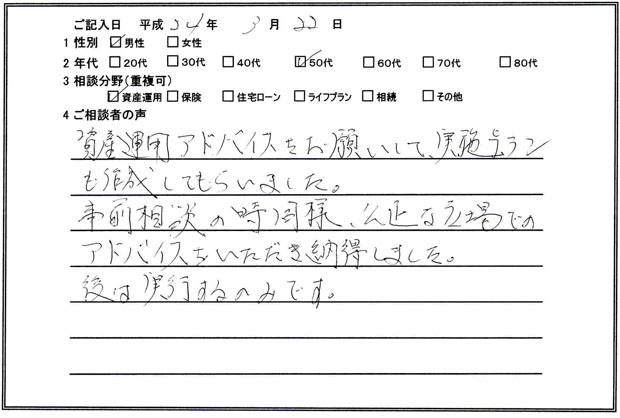 ご記入日 平成 24 年 3 月 22 日
1 性別 ☑男性 □女性
2 年代 □20代 □30代 □40代 ☑50代 □60代 □70代 □80代
3 相談分野(重複可)
☑資産運用 □保険 □住宅ローン □ライフプラン □相続 □その他
4 ご相談者の声
資産運用アドバイスをお願いして、実施プラン
も作成してもらいました。
事前相談の時同様、公正な立場での
アドバイスをいただき納得しました。
後は実行するのみです。